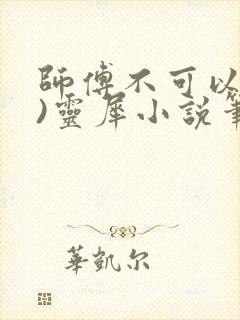 師傅不可以
)靈犀小說筆
華凱尔